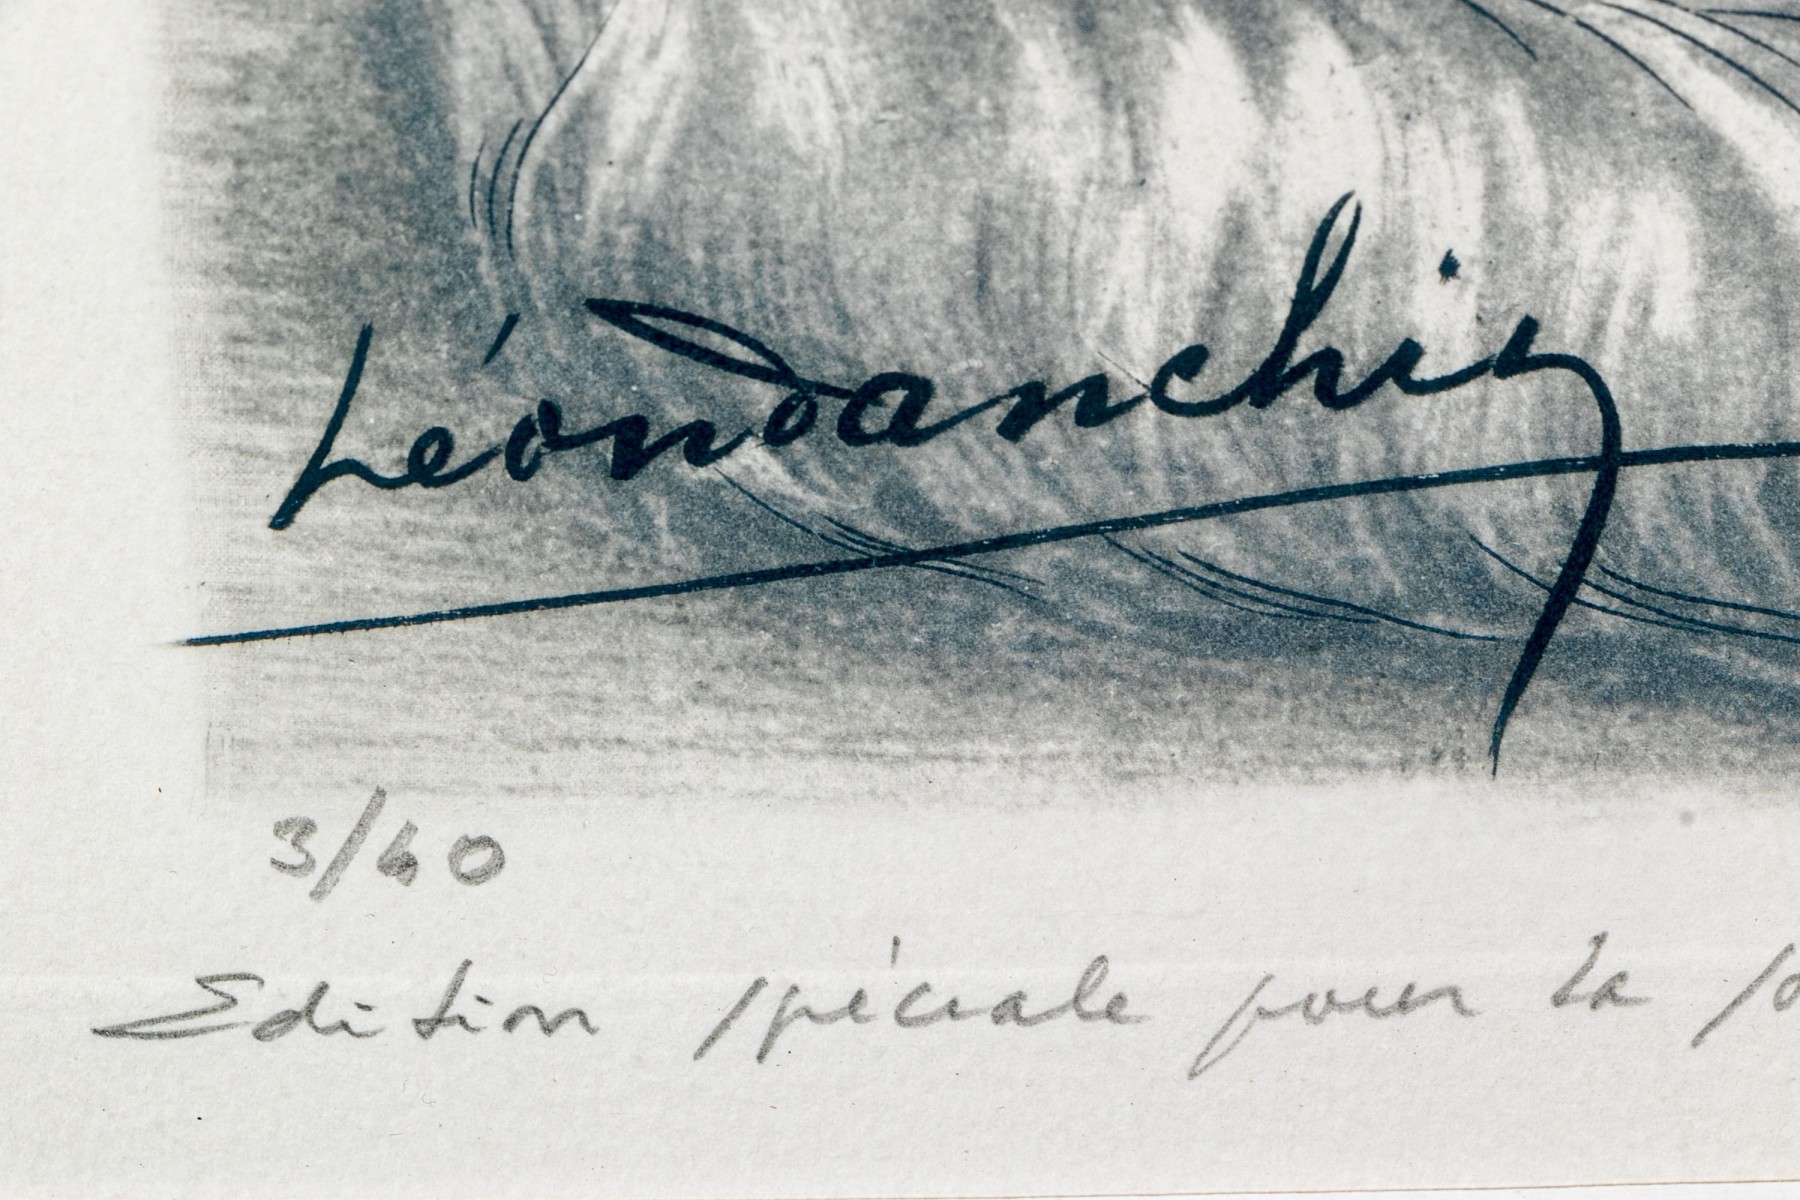 Léon Danchin
3/40
Edition spéciale pour la